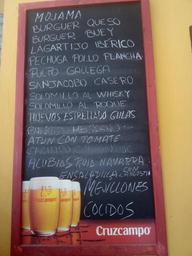 MOJAMA
BURGUER QUESO
BURGUER BUEY
LAGARTIJO IBÉRICO
PECHUGA POLLO PLANCHA
PULPO GALLEGA
SANJACOBO CASERO
SOLOMILLO AL WHISKY
SOLOMILLO AL ROQUE
HUEVOS ESTRELLADO GULAS
ATUN CON TOMATE
ALUBIAS
ENSALADILLA
MEJILLONES
COCIDOS
Cruzcampo